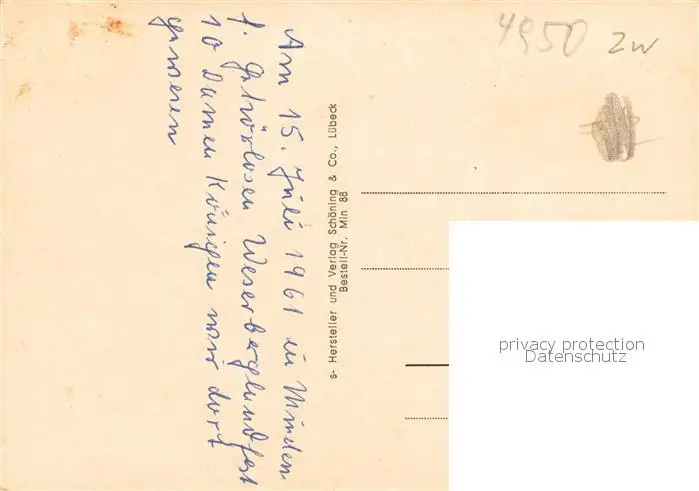 Am 15. Juli 1961 in Minden
f. Gehörlosen Weserberglandfest
10 Damen Königen wir dort
gewesen
s- Hersteller und Verlag Schöning & Co., Lübeck
Bestell-Nr. Min 88
4950 ZW
privacy protection
Datenschutz